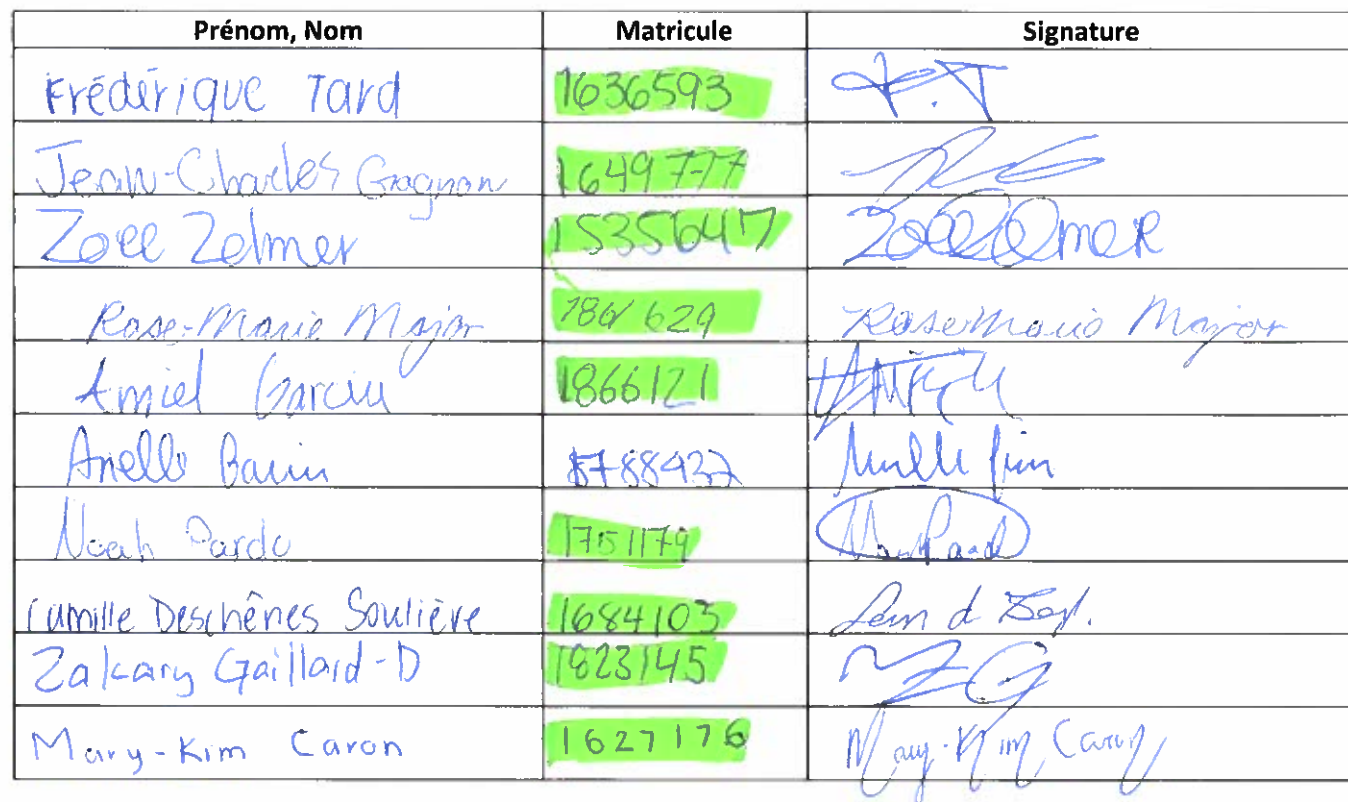 Prénom, Nom Matricule Signature
Frédérique Tard 1636593 F.T
Jean-Charles Gagnon 1649777
Zoee Zelmer 1535647 Zoee Zelmer
Rose-Marie Major 1861629 Rose Marie Major
Amiel Garcia 1866121
Arielle 8788432
Noah Pardo 1751179
Camille Deschênes Soulière 1684103
Zakary Gaillard-D 1823145 ZG
Mary-Kim Caron 1627176 Mary-Kim Caron